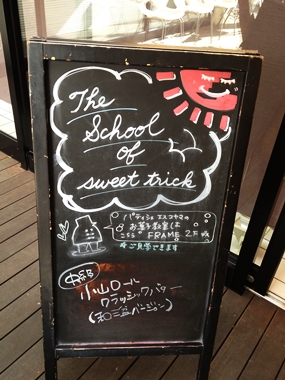 The
School
of
sweet trick
パティシエ エスコヤマの
お菓子教室は
こちら FRAME 2F
ご見学できます
小山ロール
クラシックバター
(和三盆バージョン)